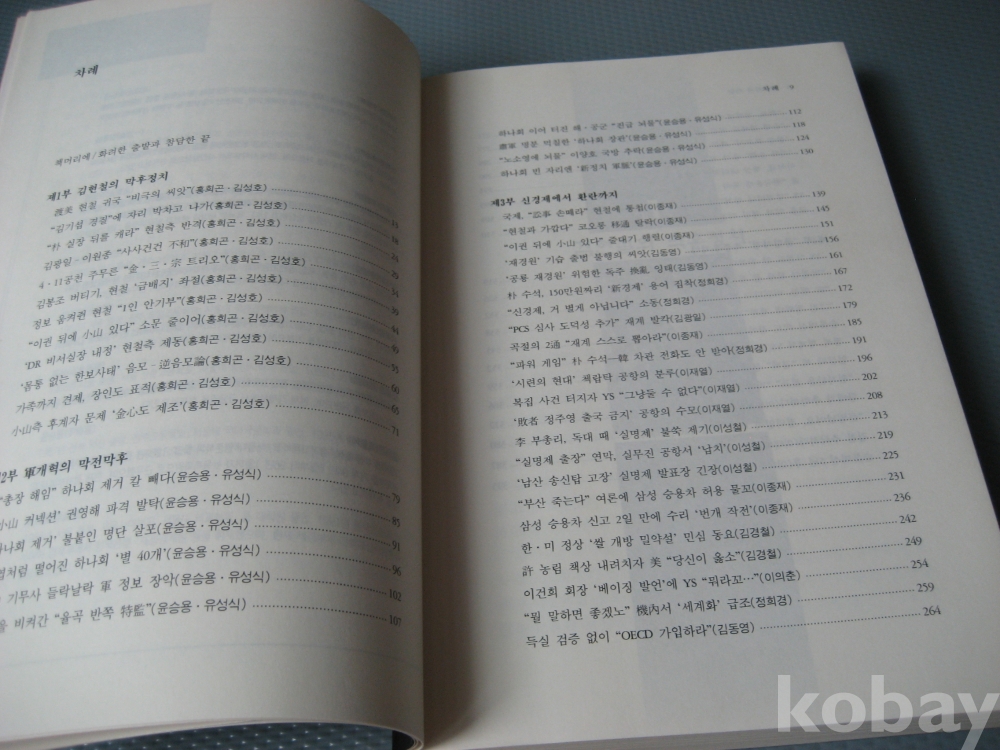 차례
책머리에/화려한 출발과 참담한 끝
제1부 김현철의 막후정치
放美 현철 귀국 “비극의 씨앗”(홍희곤·김성호)
“김기섭 경질”에 자리 박차고 나가(홍희곤·김성호) 15
“朴 실장 뒤를 캐라” 현철측 반격(홍희곤·김성호) 18
김광일·이원종 “사사건건 不和”(홍희곤·김성호) 21
4·11공천 주무른 “金·三·宗 트리오”(홍희곤·김성호)
김봉조 버티기, 현철 ‘금배지’ 좌절(홍희곤·김성호)
정보 움켜쥔 현철 “1인 안기부”(홍희곤·김성호)
“이권 뒤에 小山 있다” 소문 줄이어(홍희곤·김성호) 44
‘DR 비서실장 내정’ 현철측 제동(홍희곤·김성호)
‘몸통 없는 한보사태’ 음모·逆음모論(홍희곤·김성호) 55
가족까지 견제, 장인도 표적(홍희곤·김성호) 60
小山측 후계자 문제 ‘金心도 제조’(홍희곤·김성호) 65
71
2부 軍개혁의 막전막후
“총장 해임” 하나회 제거 칼 빼다(윤승용·유성식) 79
小山 커넥션’ 권영해 파격 발탁(윤승용·유성식) 85
하나회 제거’ 불붙인 명단 살포(윤승용·유성식) 91
처럼 떨어진 하나회 ‘별 40개’(윤승용·유성식) 96
기무사 들락날락 軍 정보 장악(윤승용·유성식) 102
을 비켜간 “율곡 반쪽 特監”(윤승용·유성식) 107
차례 9
하나회 이어 터진 해·공군 “진급 뇌물”(윤승용·유성식) 112
肅軍 명분 먹칠한 ‘하나회 장관’(윤승용·유성식) 118
“노소영에 뇌물” 이양호 국방 추락(윤승용·유성식) 124
하나회 빈 자리엔 ‘新정치 軍脈’(윤승용·유성식) 130
제3부 신경제에서 환란까지
국제, “訟事 손떼라” 현철에 통첩(이종재) 139
“현철과 가깝다” 코오롱 移通 탈락(이종재) 145
“이권 뒤에 小山 있다” 줄대기 행렬(이종재) 151
‘재경원’ 기습 출범 불행의 씨앗(김동영) 156
‘공룡 재경원’ 위험한 독주 換亂 잉태(김동영) 161
朴 수석, 150만원짜리 ‘新경제’ 용어 집착(정희경) 167
“신경제, 거 멓게 아닙니다” 소동(정희경) 172
“PCS 심사 도덕성 추가” 재계 발칵(김광일) 179
곡절의 2通 “재계 스스로 뽑아라”(이종재) 185
“파워 게임” 朴 수석－韓 차관 전화도 안 받아(정희경) 191
‘시련의 현대’ 책람탁 공항의 분루(이재열) 196
복집 사건 터지자 YS “그냥둘 수 없다”(이재열) 202
‘敗者 정주영 출국 금지’ 공항의 수모(이재열) 208
李 부총리, 독대 때 ‘실명제’ 불쑥 제기(이성철) 213
“실명제 출장” 연막, 실무진 공항서 ‘납치’(이성철) 219
‘남산 송신탑 고장’ 실명제 발표장 긴장(이성철) 225
“부산 죽는다” 여론에 삼성 승용차 허용 물꼬(이종재) 231
삼성 승용차 신고 2일 만에 수리 ‘번개 작전’(이종재) 236
한·미 정상 ‘쌀 개방 밀약설’ 민심 동요(김경철) 242
許 농림 책상 내려치자 美 “당신이 옳소”(김경철) 249
이건희 회장 ‘베이징 발언’에 YS “뭐라꼬…”(이의춘) 254
“뭘 말하면 좋겠노” 機內서 ‘세계화’ 급조(정희경) 259
득실 검증 없이 “OECD 가입하라”(김동영) 264
kobay